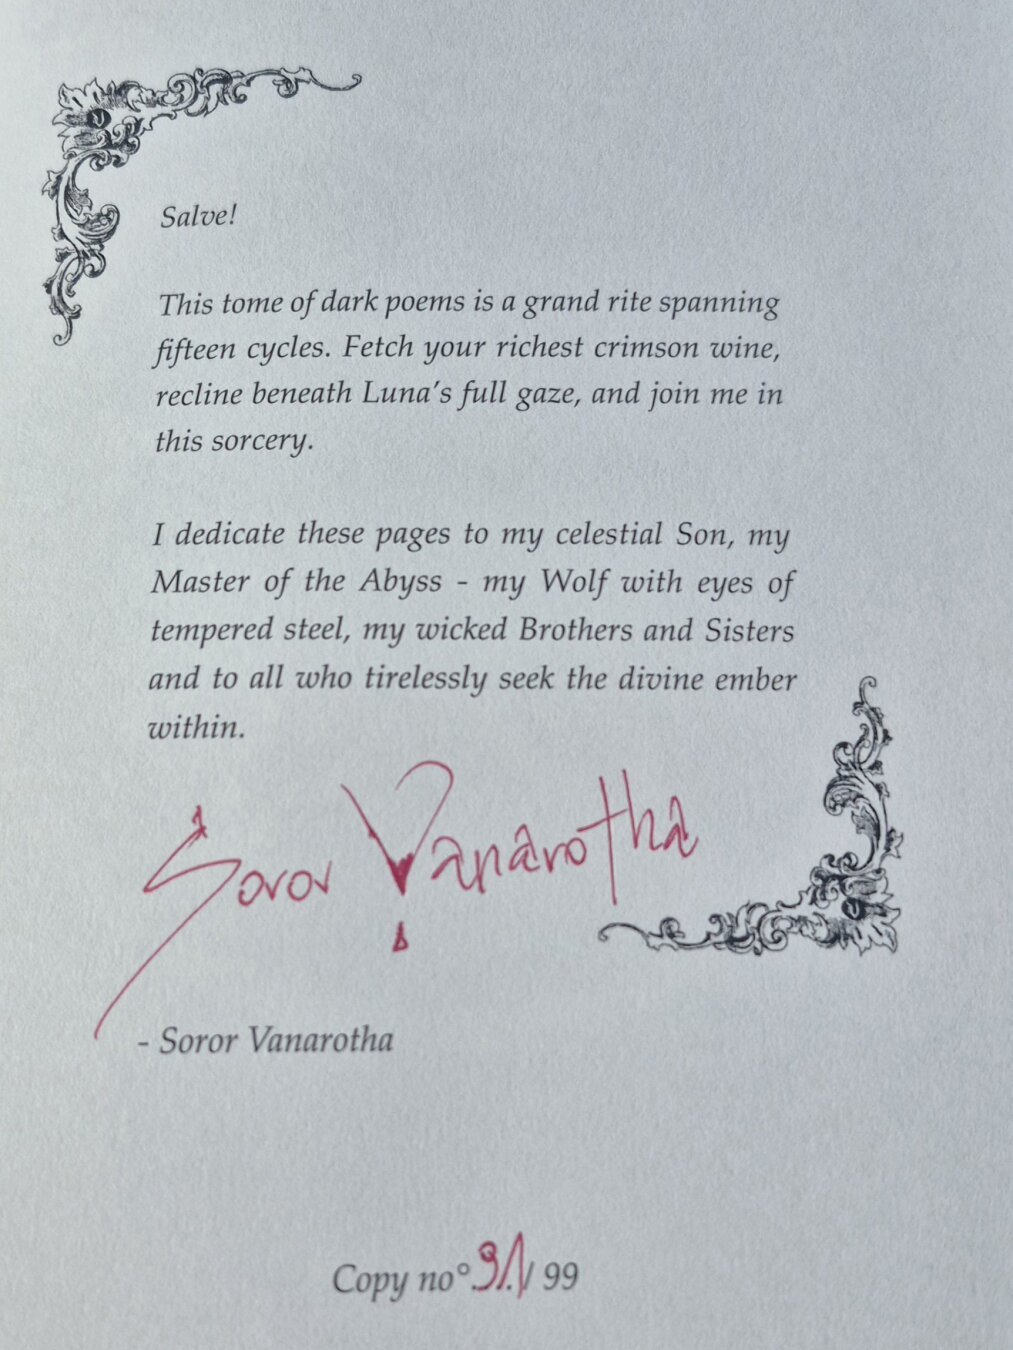 Salve!
This tome of dark poems is a grand rite spanning
fifteen cycles. Fetch your richest crimson wine,
recline beneath Luna's full gaze, and join me in
this sorcery.
I dedicate these pages to my celestial Son, my
Master of the Abyss - my Wolf with eyes of
tempered steel, my wicked Brothers and Sisters
and to all who tirelessly seek the divine ember
within.
Soror Vanarotha
- Soror Vanarotha
Copy no° 91 / 99